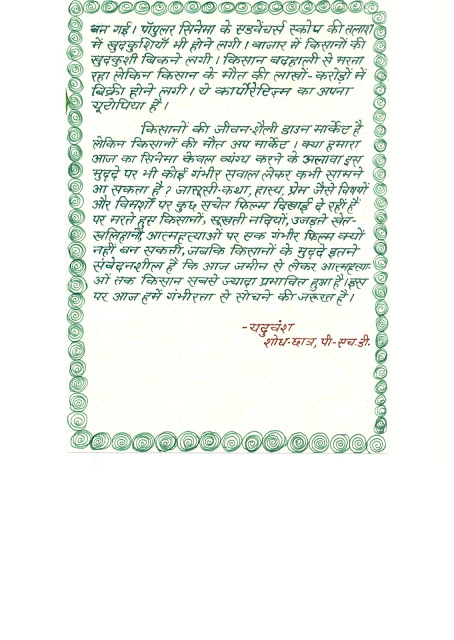 बन गई। पॉपुलर सिनेमा के एडवेंचर्स स्कोप की तलाश
में खुदकुशियाँ भी होने लगी। बाजार में किसानों की
खुदकुशी बिकने लगी। किसान बदहाली से मरता
रहा लेकिन किसान के मौत की लाखों-करोड़ों में
बिक्री होने लगी। ये कार्पोरेटिज़्म का अपना
यूटोपिया है।
किसानों की जीवन-शैली डाउन मार्केट है
लेकिन किसानों की मौत अप मार्केट। क्या हमारा
आज का सिनेमा केवल व्यंग्य करने के अलावा इस
मुद्दे पर भी कोई गंभीर सवाल लेकर कभी सामने
आ सकता है? जासूसी-कथा, हास्य, प्रेम जैसे विषयों
और विमर्शों पर कुछ सचेत फिल्म दिखाई दे रहीं हैं
पर मरते हुए किसानों, सूखती नदियों, उजड़ते खेत-
खलिहानों, आत्महत्याओं पर एक गंभीर फ़िल्म क्यों
नहीं बन सकती, जबकि किसानों के मुद्दे इतने
संवेदनशील हैं कि आज जमीन से लेकर आत्महत्या-
ओं तक किसान सबसे ज्यादा प्रभावित हुआ है। इस
पर आज हमें गंभीरता से सोचने की जरूरत है।
-यदुवंश
शोध-छात्र, पी-एच.डी.